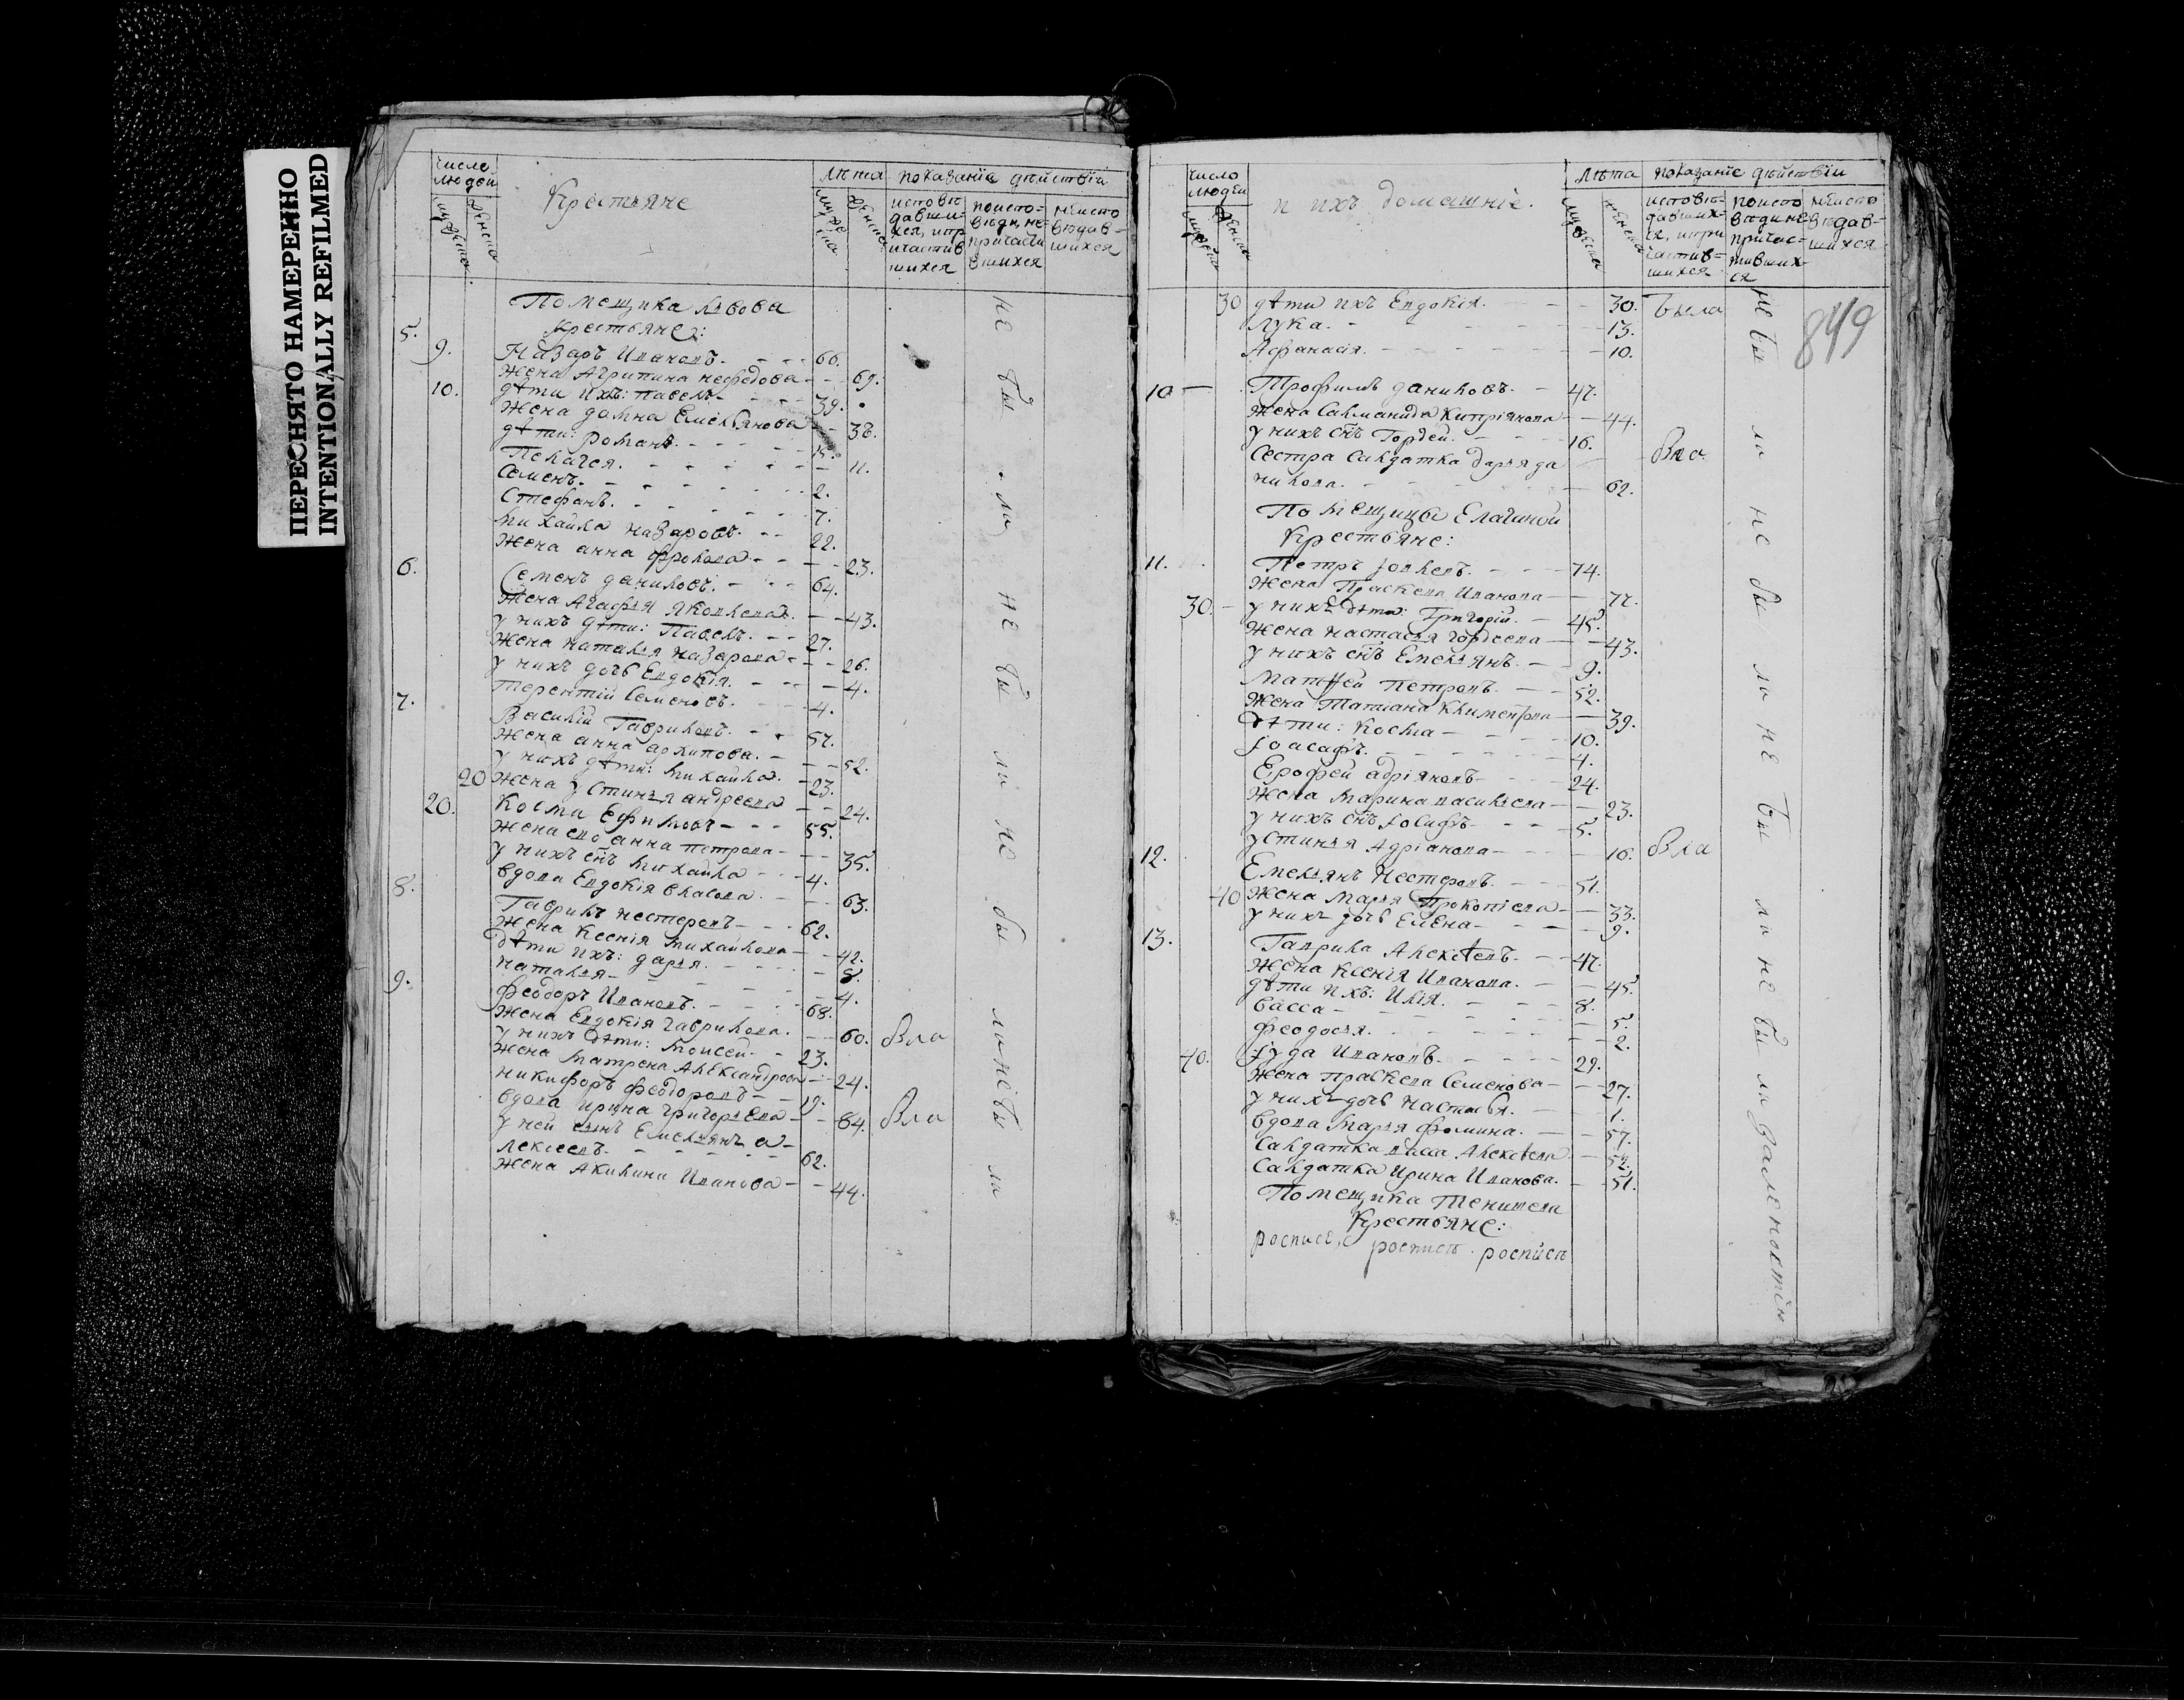 ПЕРЕСНЯТО НАМЕРЕННО
INTENTIONALLY REFILMED
число людей
мужеска
женска
Крестьяне
лѣта
мужеска
женска
показаніе дѣйствіи
исповѣдавшихся, и причастившихся
по исповѣди, не причастившихся
не исповѣдавшихся
Помещика Львова
крестьяне:
5. 9. Назаръ Ивановъ. 66.
Жена Агрипина нефедова 69.
10. дѣти ихъ: Павелъ 39.
Жена домна Емельянова 38.
дѣти: романъ. 15.
Пелагея. 11.
Семенъ. 2.
Стефанъ. 7.
Михайла назаровъ 22.
Жена анна фролова 23.
6. Семенъ даниловъ. 64.
Жена Агафья яковлева 43.
у нихъ дѣти: Павелъ. 27.
Жена наталья назарова 26.
у нихъ дочь Евдокія. 4.
терентій Семеновъ. 4.
7. Василій Гавриловъ. 57.
Жена анна архипова. 52.
у нихъ дѣти: михайла. 23.
20 Жена устинья андреева 24.
20. Косма Ефимовъ 55.
Жена ево анна петрова 35.
у нихъ снъ михайла 4.
вдова Евдокія власова. 63.
8. Гаврилъ нестеровъ 62.
Жена Ксенія михайлова 42.
дѣти ихъ: дарья. 8.
наталья 4.
9. феодоръ Ивановъ. 68.
Жена Евдокія гаврилова. 60. Бла
у нихъ дѣти: моисей. 23.
Жена матрена Александрова 24.
никифоръ феодоровъ 19.
вдова ирина григорьева 84. Бла
у ней сынъ Емельянъ а-
лексеевъ. 62.
Жена Акилина Иванова 44.
не бы ло не бы ло не бы ло не бы ло
число людеи
мужеска
женска
и ихъ домашніе.
лѣта
мужеска
женска
показаніе дѣйствіи
исповѣдавшихся, и причастившихся
по исповѣди не причастившихся
не исповѣдавшихся
849
30 дѣти ихъ Евдокія. 30. была
лука. 13.
Афанасія. 10.
10 Трофимъ даниловъ. 47.
Жена Саламанида Кипріянова 44.
у нихъ снъ Гордей. 16.
Сестра Салдатка дарья да
нилова. 62. Бла
Помещицы Елагиной
Крестьяне:
11. Петръ Іовлевъ. 74.
Жена Праскева Иванова 72.
30. у нихъ дѣти: Григорій. 45.
Жена настасья гордеева 43.
у нихъ снъ Емельянъ. 9.
Матфей Петровъ. 52.
Жена Татиана Климентова 39.
дѣти: Косма 10.
Іоасафъ. 4.
Ерофей адріяновъ 24.
Жена Марина васильева 23.
у нихъ снъ Іосифъ 5.
устинья Адріанова 16. Бла
12. Емельянъ Нестеровъ. 51.
40 Жена Марья Прокопіева 33.
у нихъ дочь Елена 9.
13. Гаврила Алексѣевъ. 47.
Жена Ксенія Иванова. 45.
дѣти ихъ: Илія. 8.
Васса 5.
феодосья. 2.
40. Іуда Ивановъ. 29.
Жена Праскева Семенова 27.
у нихъ дочь настасья. 1.
вдова Марья фомина. 57.
Салдатка васса Алексѣева 52.
Салдатка Ирина Иванова. 51.
Помещика Тенишева
Крестьяне:
роспись роспись роспись
не бы ло не бы ло не бы ло не бы ло